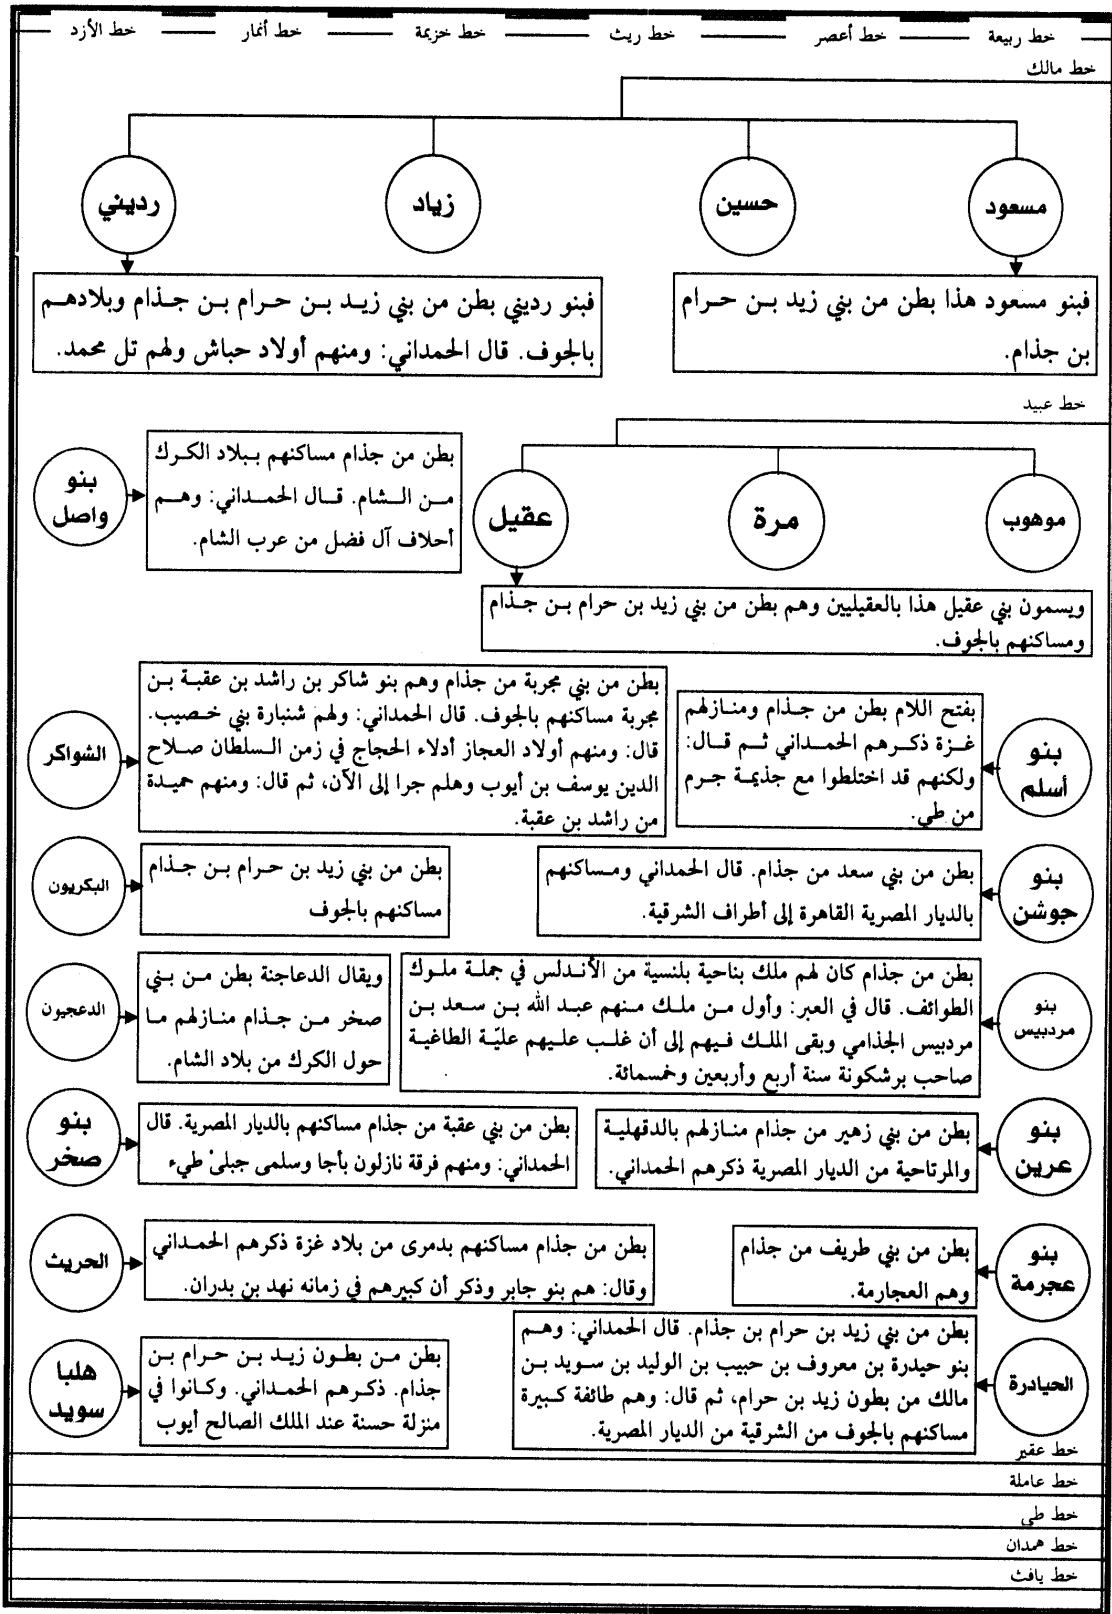 خط ربيعة خط أعصر خط ريث خط خزيمة خط أنمار خط الأزد
خط مالك
مسعود
حسين
زياد
رديني
فبنو مسعود هذا بطن من بني زيد بن حرام
بن جذام.
فبنو رديني بطن من بني زيد بن حرام بن جذام وبلادهم
بالجوف. قال الحمداني: ومنهم أولاد حباش ولهم تل محمد.
خط عبيد
موهوب
مرة
عقيل
ويسمون بني عقيل هذا بالعقيليين وهم بطن من بني زيد بن حرام بن جذام
ومساكنهم بالجوف.
بنو
واصل
بطن من جذام مساكنهم ببلاد الكرك
من الشام. قال الحمداني: وهم
أحلاف آل فضل من عرب الشام.
بنو
أسلم
بفتح اللام بطن من جذام ومنازلهم
غزة ذكرهم الحمداني ثم قال:
ولكنهم قد اختلطوا مع جذيمة جرم
من طي.
الشواكر
بطن من بني مجربة من جذام وهم بنو شاكر بن راشد بن عقبة بن
مجربة مساكنهم بالجوف. قال الحمداني: ولهم شنبارة بني خصيب.
قال: ومنهم أولاد العجاز أدلاء الحجاج في زمن السلطان صلاح
الدين يوسف بن أيوب وهلم جرا إلى الآن، ثم قال: ومنهم حميدة
من راشد بن عقبة.
بنو
جوشن
بطن من بني سعد من جذام. قال الحمداني ومساكنهم
بالديار المصرية القاهرة إلى أطراف الشرقية.
البكريون
بطن من بني زيد بن حرام بن جذام
مساكنهم بالجوف
بنو
مردبيس
بطن من جذام كان لهم ملك بناحية بلنسية من الأندلس في جملة ملوك
الطوائف. قال في العبر: وأول من ملك منهم عبد الله بن سعد بن
مردبيس الجذامي وبقى الملك فيهم إلى أن غلب عليهم عليّة الطاغية
صاحب برشكونة سنة أربع وأربعين وخمسمائة.
الدعجيون
ويقال الدعاجنة بطن من بني
صخر من جذام منازلهم ما
حول الكرك من بلاد الشام.
بنو
عرين
بطن من بني زهير من جذام منازلهم بالدقهلية
والمرتاحية من الديار المصرية ذكرهم الحمداني.
بنو
صخر
بطن من بني عقبة من جذام مساكنهم بالديار المصرية. قال
الحمداني: ومنهم فرقة نازلون بأجا وسلمى جبلىْ طيء
بنو
عجرمة
بطن من بني طريف من جذام
وهم العجارمة.
الحريث
بطن من جذام مساكنهم بدمرى من بلاد غزة ذكرهم الحمداني
وقال: هم بنو جابر وذكر أن كبيرهم في زمانه نهد بن بدران.
الحيادرة
بطن من بني زيد بن حرام بن جذام. قال الحمداني: وهم
بنو حيدرة بن معروف بن حبيب بن الوليد بن سويد بن
مالك من بطون زيد بن حرام، ثم قال: وهم طائفة كبيرة
مساكنهم بالجوف من الشرقية من الديار المصرية.
هلبا
سويد
بطن من بطون زيد بن حرام بن
جذام. ذكرهم الحمداني. وكانوا في
منزلة حسنة عند الملك الصالح أيوب
خط عقير
خط عاملة
خط طي
خط همدان
خط يافث